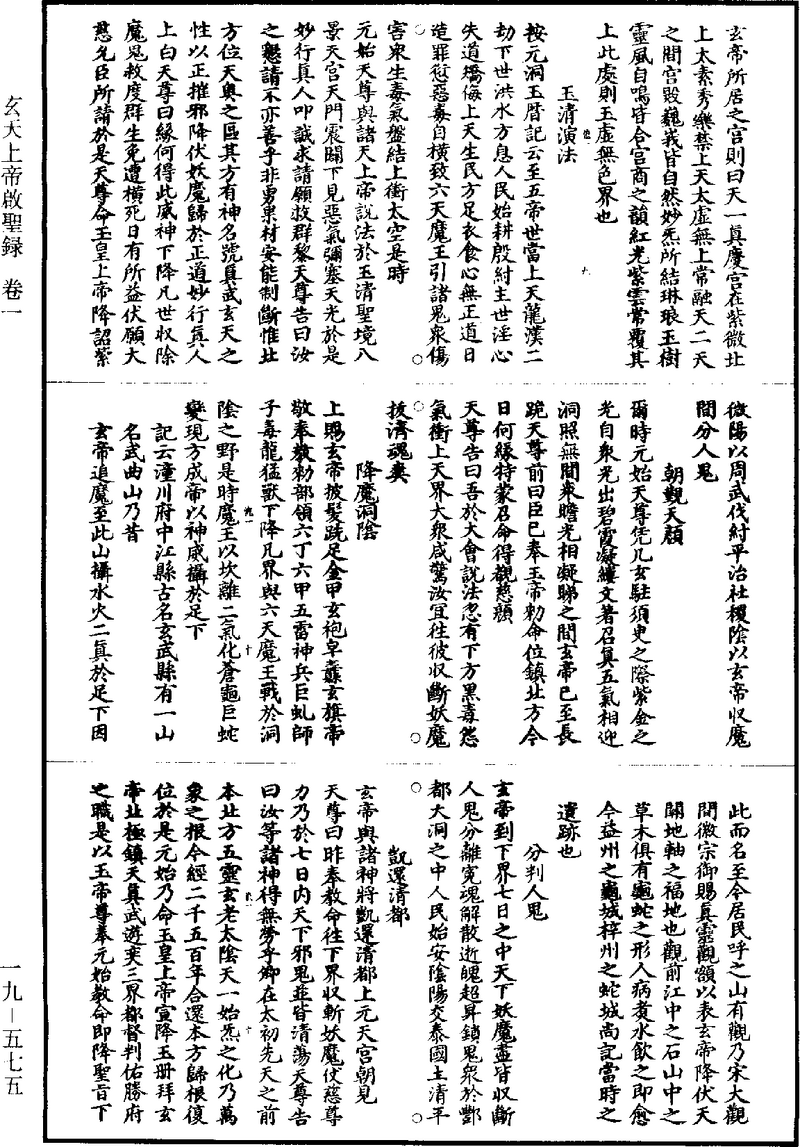 玄帝所居之宮則曰天一真慶宮在紫微北
上太素秀樂禁上天太虛無上常融天二天
之間宮殿巍峩皆自然妙炁所結琳琅玉樹
靈風自鳴皆合宮商之韻紅光紫雲常覆其
上此處則玉虛無色界也
玉清演法
按元洞玉曆記云至五帝世當上天龍漢二
劫下世洪水方息人民始耕殷紂主世淫心
失道矯侮上天生民方足衣食心無正道日
造罪愆惡毒自橫致六天魔王引諸鬼衆傷
害衆生毒氣盤結上衝太空是時
元始天尊與諸天上帝說法於玉清聖境八
景天宮天門震闢下見惡氣彌塞天光於是
妙行真人叩誠求請願救群黎天尊告曰汝
之懇請不亦善乎非勇果材安能制斷惟北
方位天輿之區其方有神名號真武玄天之
性以正摧邪降伏妖魔歸於正道妙行真人
上白天尊曰緣何得此威神下降凡世収除
魔鬼救度群生免遭橫死日有所益伏願大
慈允臣所請於是天尊命玉皇上帝降詔紫
微陽以周武伐紂平治社稷陰以玄帝収魔
間分人鬼
朝覲天顏
爾時元始天尊凭几玄駐須臾之際紫金之
光自衆光出碧霞凝縷文著召真五氣相迎
洞照無間衆瞻光相凝睇之間玄帝已至長
跪天尊前曰臣已奉玉帝勑命位鎮北方今
日何緣特蒙召命得覩慈顏
天尊告曰吾於大會說法忽有下方黑毒怨
氣衝上天界大衆咸驚汝宜往彼収斷妖魔
拔濟魂爽
降魔洞陰
上賜玄帝披髮跣足金甲玄袍皁纛玄旗帝
敬奉教勑部領六丁六甲五雷神兵巨虬師
子毒龍猛獸下降凡界與六天魔王戰於洞
陰之野是時魔王以坎離二氣化蒼龜巨蛇
變現方成帝以神威攝於足下
記云潼川府中江縣古名玄武縣有一山
名武曲山乃昔
玄帝追魔至此山攝水火二真於足下因
此而名至今居民呼之山有觀乃宋大觀
間徽宗御賜真靈觀額以表玄帝降伏天
關地軸之福地也觀前江中之石山中之
草木俱有龜蛇之形人病煑水飲之即愈
今益州之龜城梓州之蛇城尚記當時之
遺跡也
分判人鬼
玄帝到下界七日之中天下妖魔並皆収斷
人鬼分離寃魂解散逝魄超昇鎖鬼衆於酆
都大洞之中人民始安陰陽交泰國土清平
凱還清都
玄帝與諸神將凱還清都上元天宮朝見
天尊曰昨奉教命往下界収斬妖魔仗慈尊
力乃於七日内天下邪鬼並皆清蕩天尊告
曰汝等諸神得無勞乎卿在太初先天之前
本北方五靈玄老太陰天一始炁之化乃萬
象之根今經二千五百年合還本方歸根復
位於是元始乃命玉皇上帝宣降玉册拜玄
帝北極鎮天真武遊奕三界都督判佑勝府
之職是以玉帝尊奉元始教命即降聖旨下
玄天上帝啟聖録　卷一
一九－五七五